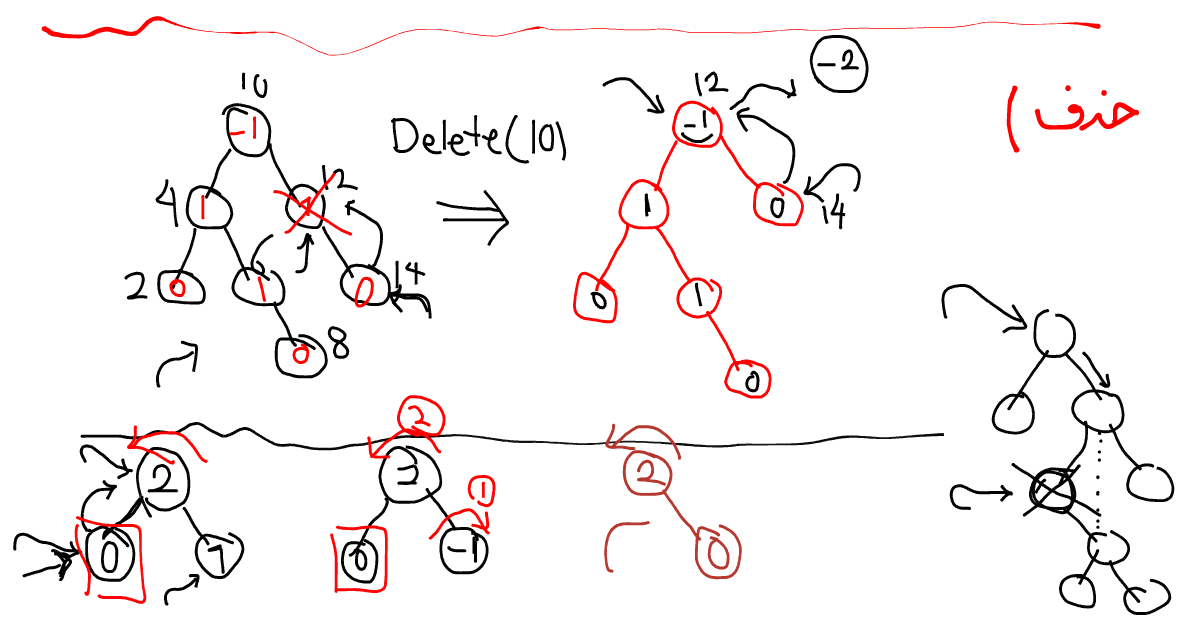 حذف (
10
-1
4 1
12
2 0
1
0 14
0 8
Delete(10)
12
-1
-2
1
0
14
0
1
0
2
0
1
2
3
0
-1
1
2
0